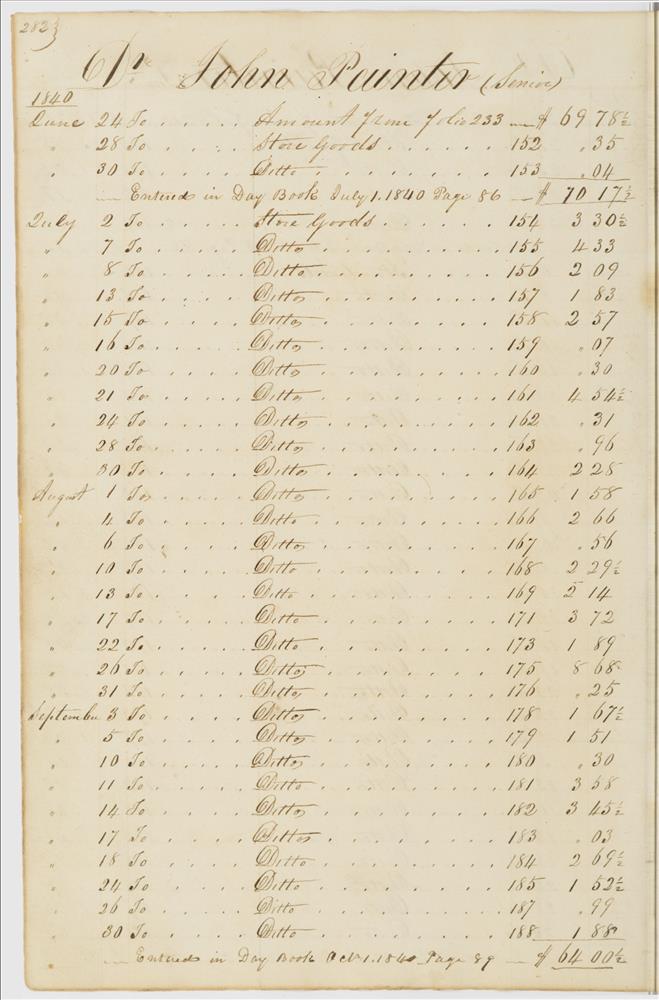 282}
Dr John Painter (Senior)
1840
June 24 To . . . . . Amount from folio 233 — $ 69 78½
" 28 To . . . . . Store Goods . . . . . . 152 . 35
" 30 To . . . . . Ditto . . . . . . . . . 153 . 04
— Entered in Day Book July 1. 1840 Page 86 — $ 70 17½
July 2 To . . . . . Store Goods . . . . . . 154 3 30½
" 7 To . . . . . Ditto . . . . . . . . . 155 4 33
" 8 To . . . . . Ditto . . . . . . . . . 156 2 09
" 13 To . . . . . Ditto . . . . . . . . . 157 1 83
" 15 To . . . . . Ditto . . . . . . . . . 158 2 57
" 16 To . . . . . Ditto . . . . . . . . . 159 . 07
" 20 To . . . . . Ditto . . . . . . . . . 160 . 30
" 21 To . . . . . Ditto . . . . . . . . . 161 4 54½
" 24 To . . . . . Ditto . . . . . . . . . 162 . 31
" 28 To . . . . . Ditto . . . . . . . . . 163 . 96
" 30 To . . . . . Ditto . . . . . . . . . 164 2 28
August 1 To . . . . . Ditto . . . . . . . . . 165 1 58
" 4 To . . . . . Ditto . . . . . . . . . 166 2 66
" 6 To . . . . . Ditto . . . . . . . . . 167 . 56
" 10 To . . . . . Ditto . . . . . . . . . 168 2 29½
" 13 To . . . . . Ditto . . . . . . . . . 169 2 14
" 17 To . . . . . Ditto . . . . . . . . . 171 3 72
" 22 To . . . . . Ditto . . . . . . . . . 173 1 89
" 26 To . . . . . Ditto . . . . . . . . . 175 8 68
" 31 To . . . . . Ditto . . . . . . . . . 176 . 25
September 3 To . . . . . Ditto . . . . . . . . . 178 1 67½
" 5 To . . . . . Ditto . . . . . . . . . 179 1 51
" 10 To . . . . . Ditto . . . . . . . . . 180 . 30
" 11 To . . . . . Ditto . . . . . . . . . 181 3 58
" 14 To . . . . . Ditto . . . . . . . . . 182 3 45½
" 17 To . . . . . Ditto . . . . . . . . . 183 . 03
" 18 To . . . . . Ditto . . . . . . . . . 184 2 69½
" 24 To . . . . . Ditto . . . . . . . . . 185 1 52½
" 26 To . . . . . Ditto . . . . . . . . . 187 . 99
" 30 To . . . . . Ditto . . . . . . . . . 188 1 88
— Entered in Day Book Octr 1. 1840 Page 89 — $ 64 00½